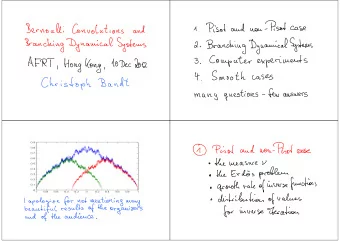 Bernoulli Convolutions and
Branching Dynamical Systems
AFRT, Hong Kong, 10 Dec 2012
Christoph Bandt
1. Pisot and non-Pisot case
2. Branching Dynamical Systems
3. Computer experiments
4. Smooth cases
many questions - few answers
I apologize for not mentioning many
beautiful results of the organizers
and of the audience.
1 Pisot and non-Pisot case
• the measure ν
• the Erdös problem
• growth rate of inverse functions
• distribution of values
for inverse iteration